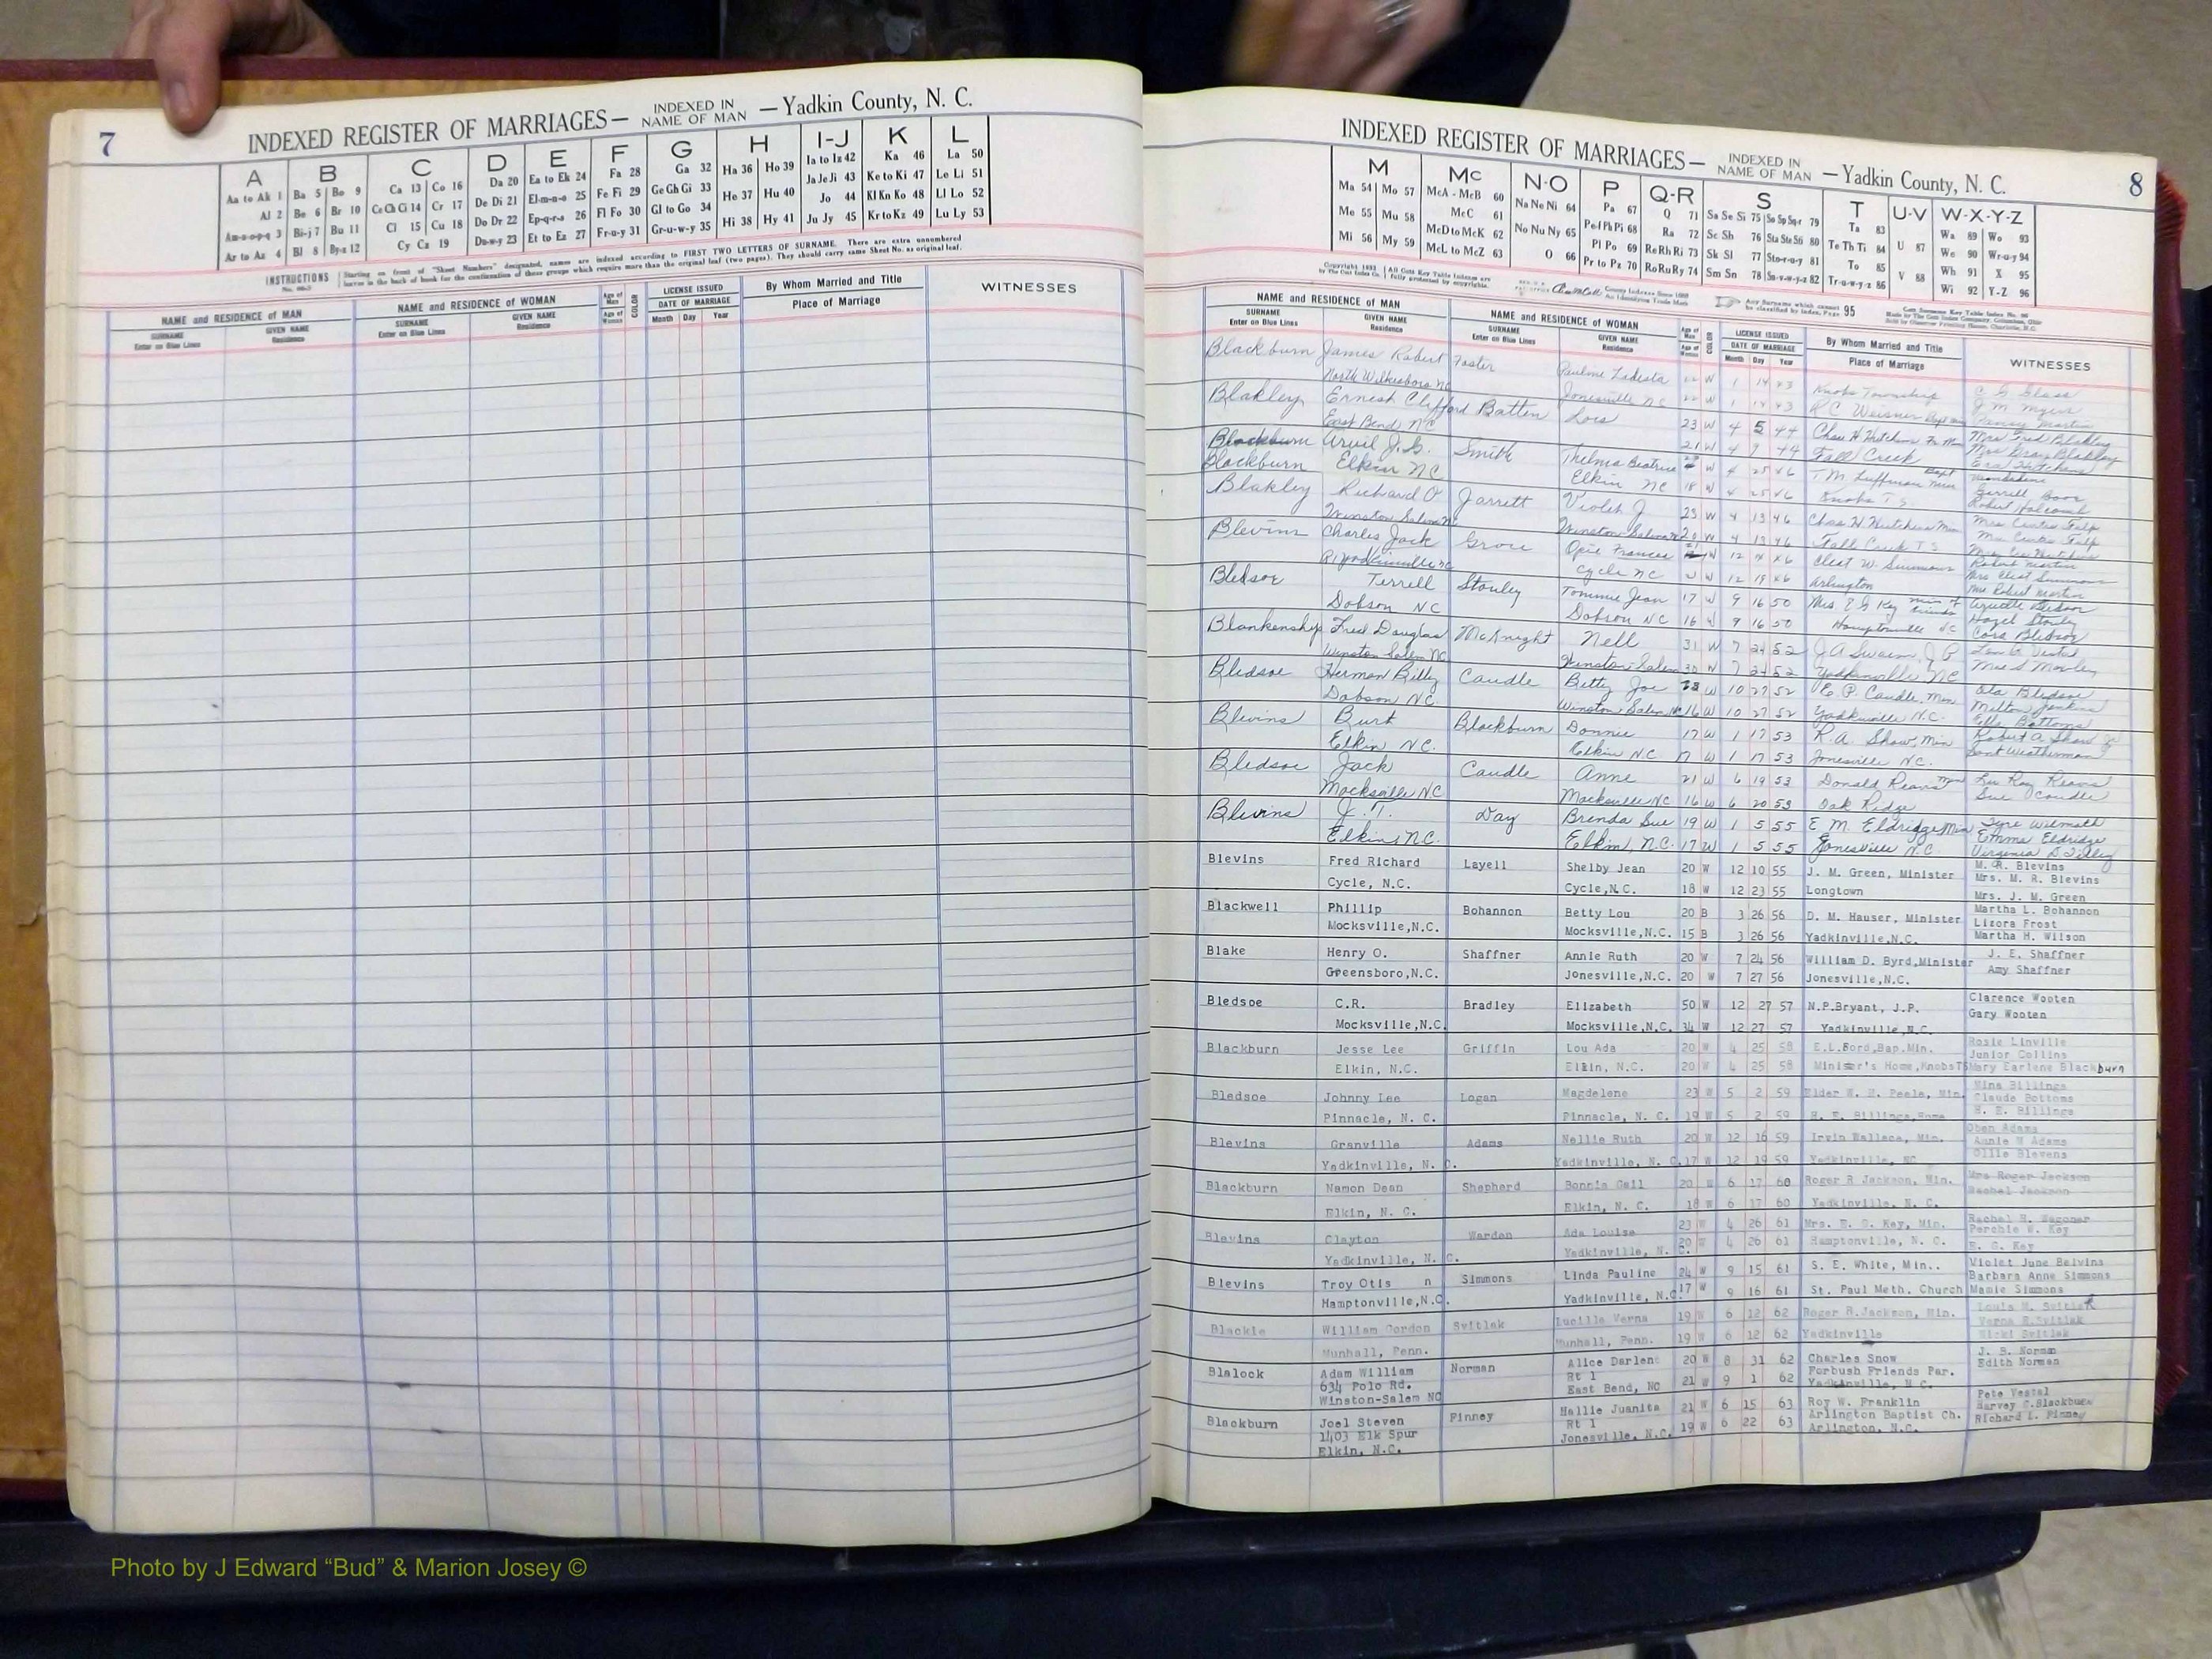 7
INDEXED REGISTER OF MARRIAGES— INDEXED IN NAME OF MAN — Yadkin County, N. C.
A B C D E F G H I-J K L
Aa to Ak 1 Ba 5 Bo 9 Ca 13 Co 16 Da 20 Ea to Ek 24 Fa 28 Ga 32 Ha 36 Ho 39 Ia to Iz 42 Ka 46 La 50
Al 2 Be 6 Br 10 Ce Ch Ci 14 Cr 17 De Di 21 El-m-n-o 25 Fe Fi 29 Ge Gh Gi 33 He 37 Hu 40 Ja Je Ji 43 Ke to Ki 47 Le Li 51
Am-n-o-p-q 3 Bi-j 7 Bu 11 Cl 15 Cu 18 Do Dr 22 Ep-q-r-s 26 Fl Fo 30 Gl to Go 34 Hi 38 Hy 41 Jo 44 Kl Kn Ko 48 Ll Lo 52
Ar to Az 4 Bl 8 By-z 12 Cy Cz 19 Du-w-y 23 Et to Ez 27 Fr-u-y 31 Gr-u-w-y 35 Ju Jy 45 Kr to Kz 49 Lu Ly 53
INSTRUCTIONS Starting on front of "Sheet Numbers" designated, names are indexed according to FIRST TWO LETTERS OF SURNAME. There are extra unnumbered
leaves in the back of book for the continuation of those groups which require more than the original leaf (two pages). They should carry same Sheet No. as original leaf.
NAME and RESIDENCE OF MAN NAME and RESIDENCE OF WOMAN Age of Man Age of Woman COLOR LICENSE ISSUED DATE OF MARRIAGE By Whom Married and Title Place of Marriage WITNESSES
SURNAME Enter on Blue Lines GIVEN NAME Residence SURNAME Enter on Blue Lines GIVEN NAME Residence Month Day Year
INDEXED REGISTER OF MARRIAGES— INDEXED IN NAME OF MAN — Yadkin County, N. C.
8
M Mc N-O P Q-R S T U-V W-X-Y-Z
Ma 54 Mo 57 McA - McB 60 Na Ne Ni 64 Pa 67 Q 71 Sa Se Si 75 So Sp Sq-r 79 Ta 83 U 87 Wa 89 Wo 93
Me 55 Mu 58 McC 61 No Nu Ny 65 Pe Pf Ph Pi 68 Ra 72 Sc Sh 76 Sta Ste Sti 80 Te Th Ti 84 V 88 We 90 Wr-u-y 94
Mi 56 My 59 McD to McK 62 O 66 Pl Po 69 Re Rh Ri 73 Sk Sl 77 Sto-r-u-y 81 To 85 Wh 91 X 95
McL to McZ 63 Pr to Pz 70 Ro Ru Ry 74 Sm Sn 78 Su-v-w-y-z 82 Tr-u-w-y-z 86 Wi 92 Y-Z 96
Any Surname which cannot be classified by index, Page 95
NAME and RESIDENCE OF MAN NAME and RESIDENCE OF WOMAN Age of Man Age of Woman COLOR LICENSE ISSUED DATE OF MARRIAGE By Whom Married and Title Place of Marriage WITNESSES
SURNAME Enter on Blue Lines GIVEN NAME Residence SURNAME Enter on Blue Lines GIVEN NAME Residence Month Day Year
Blackburn James Robert Foster Pauline Ladesta 22 W 1 14 43 Knobs Township
North Wilkesboro NC Jonesville NC 22 W 1 14 43
Blakley Ernest Clifford Batten Lois 23 W 4 5 44 Chas H Hutchens Mrs Fred Blakley
East Bend NC 21 W 4 9 44 Fall Creek
Blackburn Arvil J.G. Smith Thelma Beatrice W 4 25 46 T M Luffman
Blackburn Elkin NC Elkin NC 18 W 4 25 46 Knobs T S
Blakley Richard O Jarrett Violet J 23 W 4 13 46 Chas H Hutchens Min
Winston Salem NC Winston Salem NC 20 W 4 13 46 Fall Creek T S
Blevins Charles Jack Groce Opie Frances W 12 Clest W. Simmons Robert Martin
Yadkinville NC Cycle NC W 12 19 46 Arlington Mrs Clest Simmons
Mrs Robert Martin
Bledsoe Terrell Stanley Tommie Jean 17 W 9 16 50 Mrs E G Key
Dobson NC Dobson NC 16 W 9 16 50 Hamptonville NC Hazel Stanley
Cora Bledsoe
Blankenship Fred Douglas McKnight Nell 31 W 7 24 52 J A Swaim J P
Winston Salem NC Winston Salem 30 W 7 24 52 Yadkinville NC
Bledsoe Herman Billy Caudle Betty Joe 18 W 10 27 52 E. P. Caudle, Min Ola Bledsoe
Dobson NC. Winston Salem NC 16 W 10 27 52 Yadkinville N.C. Milton Jenkins
Blevins Burt Blackburn Donnie 17 W 1 17 53 R.A. Shaw, Min Robert A Shaw Jr
Elkin NC. Elkin NC 17 W 1 17 53 Jonesville N.C.
Bledsoe Jack Caudle Anne 21 W 6 19 53 Donald Reavis Min
Mocksville NC Mocksville NC 16 W 6 20 53 Oak Ridge Sue Caudle
Blevins J. T. Day Brenda Sue 19 W 1 5 55 E M. Eldridge Min
Elkin, N.C. Elkin, N.C. 17 W 1 5 55 Jonesville N.C. Emma Eldridge
Blevins Fred Richard Layell Shelby Jean 20 W 12 10 55 J. M. Green, Minister M. R. Blevins
Cycle, N.C. Cycle,N.C. 18 W 12 23 55 Longtown Mrs. M. R. Blevins
Mrs. J. M. Green
Blackwell Phillip Bohannon Betty Lou 20 B 3 26 56 D. M. Hauser, Minister Martha L. Bohannon
Lizora Frost
Mocksville,N.C. Mocksville,N.C. 15 B 3 26 56 Yadkinville,N.C. Martha H. Wilson
Blake Henry O. Shaffner Annie Ruth 20 W 7 24 56 William D. Byrd,Minister J. E. Shaffner
Greensboro,N.C. Jonesville,N.C. 20 W 7 27 56 Jonesville,N.C. Amy Shaffner
Bledsoe C.R. Bradley Elizabeth 50 W 12 27 57 N.P.Bryant, J.P. Clarence Wooten
Gary Wooten
Mocksville,N.C. Mocksville,N.C. 34 W 12 27 57 Yadkinville,N.C.
Blackburn Jesse Lee Griffin Lou Ada 20 W 4 25 58 E.L.Ford,Bap.Min. Rosie Linville
Junior Collins
Elkin, N.C. Elkin, N.C. 20 W 4 25 58 Minister's Home,KnobsTS Mary Earlene Blackburn
Bledsoe Johnny Lee Logan Magdelene 23 W 5 2 59 Elder W. H. Peele, Min. Mina Billings
Claude Bottoms
Pinnacle, N. C. Pinnacle, N. C. 19 W 5 2 59 H. E. Billings,Home H. E. Billings
Blevins Granville Adams Nellie Ruth 20 W 12 16 59 Irvin Wallace, Min. Oben Adams
Annie M Adams
Yadkinville, N. C. Yadkinville, N. C. 17 W 12 19 59 Yadkinville, NC Ollie Blevens
Blackburn Namon Dean Shepherd Bonnie Gail 20 W 6 17 60 Roger R Jackson, Min. Mrs Roger Jackson
Rachel Jackson
Elkin, N. C. Elkin, N. C. 18 W 6 17 60 Yadkinville, N. C.
Blevins Clayton Warden Ada Louise 23 W 4 26 61 Mrs. E. G. Key, Min. Rachel H. Wagoner
Perchie W. Key
Yadkinville, N. C. Yadkinville, N. C. 20 W 4 26 61 Hamptonville, N. C. E. G. Key
Blevins Troy Otis n Simmons Linda Pauline 24 W 9 15 61 S. E. White, Min.. Violet June Belvins
Barbara Anne Simmons
Hamptonville,N.C. Yadkinville, N.C. 17 W 9 16 61 St. Paul Meth. Church Mamie Simmons
Blackie William Gordon Svitlak Lucille Verna 19 W 6 12 62 Roger R.Jackson, Min. Louis M. Svitlak
Verna E.Svitlak
Munhall, Penn. Munhall, Penn. 19 W 6 12 62 Yadkinville Nicki Svitlak
Blalock Adam William Norman Alice Darlene 20 W 8 31 62 Charles Snow J. S. Norman
634 Polo Rd. Rt 1 Forbush Friends Par. Edith Norman
Winston-Salem NC East Bend, NC 21 W 9 1 62 Yadkinville, N.C.
Blackburn Joel Steven Pinney Hallie Juanita 21 W 6 15 63 Roy W. Franklin Pete Vestal
1403 Elk Spur Rt 1 Arlington Baptist Ch. Harvey C.Blackburn
Elkin, N.C. Jonesville, N.C. 19 W 6 22 63 Arlington, N.C. Richard L. Pinney
Photo by J Edward “Bud” & Marion Josey ©